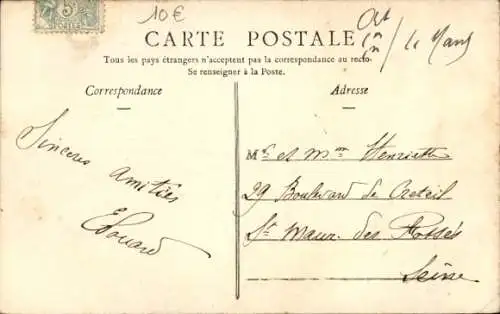 5
10€
CARTE POSTALE
Le Mans
Tous les pays étrangers n'acceptent pas la correspondance au recto
Se renseigner à la Poste.
Correspondance
Adresse
Sincères
amitiés
Edouard
Mr et Mme Henriette
29 Boulevard de Creteil
St Maur des Fossés
Seine